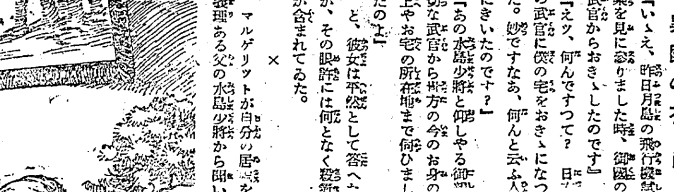 『いゝえ、昨日月島の飛行機
を見に參りました時、御國の
武官からおきゝしたのです』
『えッ、何んですつて？　日
の武官に僕の宅をおきゝになつ
た。妙ですなあ、何んと云ふ人
にきいたのです？』
『あの水島少將と仰しやる御
切な武官から貴方の今のお身の
上やお宅の所在地まで伺ひまし
たのよ』
と、彼女は平然として答へた
が、その眼許には何となく殺
が含まれてゐた。
×
マルゲリットが自分の居を
義理ある父の水島少將から聞い